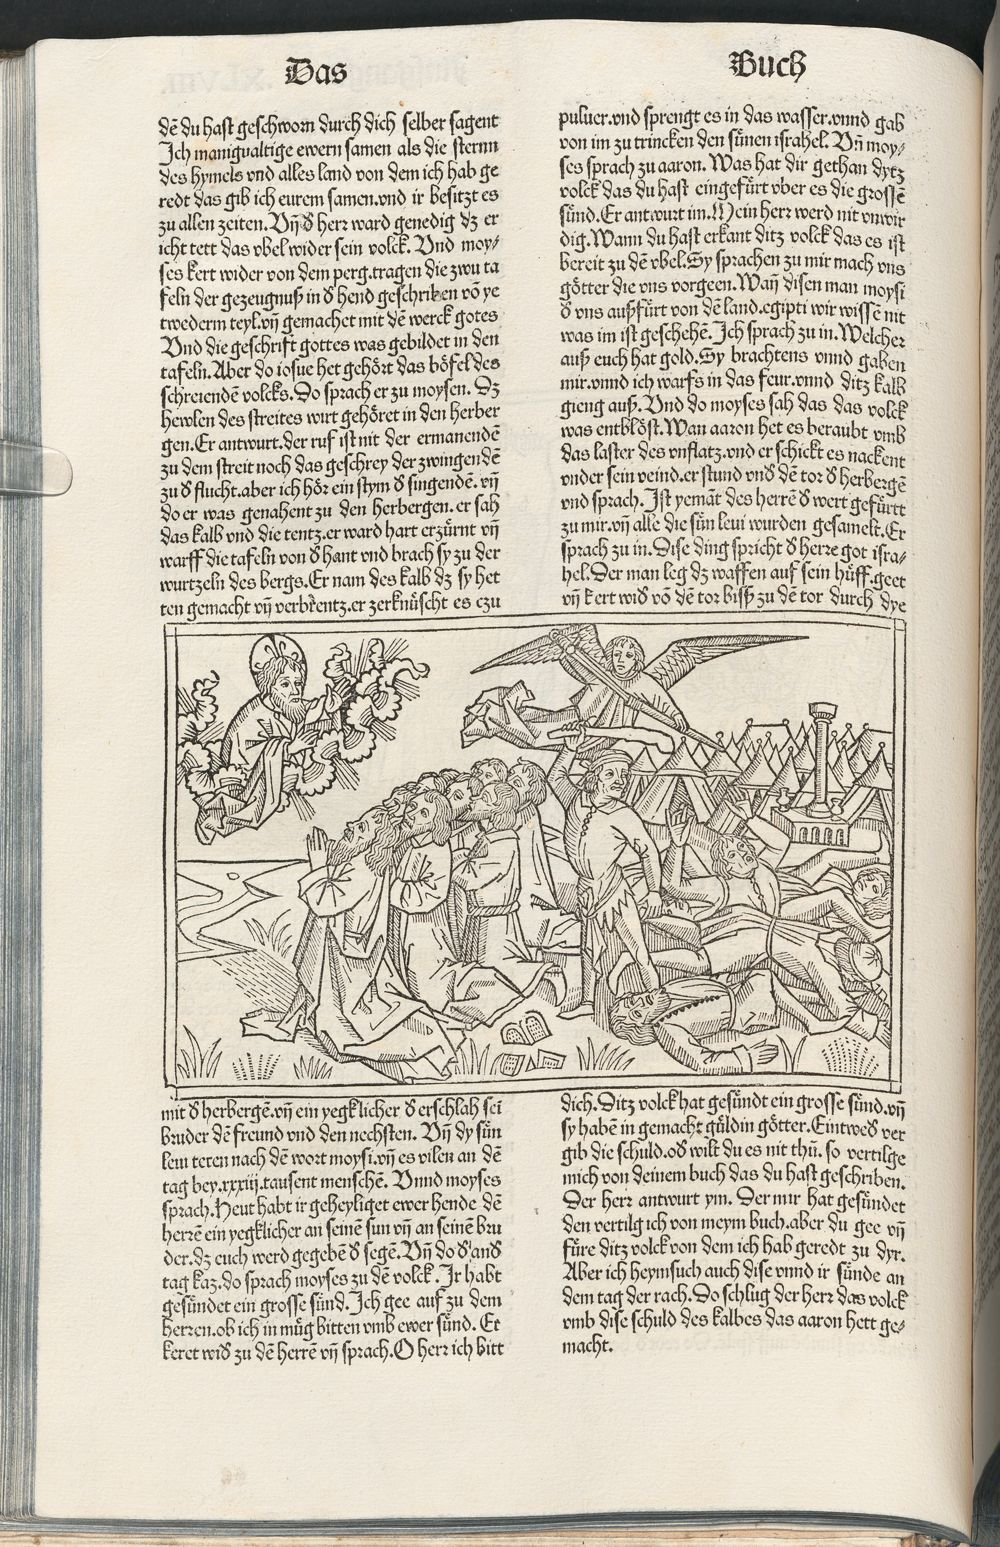 Das
Buch
dē du hast geschworn durch dich selber sagent
Ich manigualtige ewern samen als die sternn
des hymels vnd alles land von dem ich hab ge
redt das gib ich eurem samen.vnd ir besitzt es
zu allen zeiten. Vn̄ d̕ herr ward genedig dz er
icht tett das vbel wider sein volck. Vnd moy⸗
ses kert wider von dem perg.tragen die zwu ta
feln der gezeugnuß in d̕ hend geschriben vō ye
twederm teyl.vn̄ gemachet mit dē werck gotes
Vnd die geschrift gottes was gebildet in den
tafeln. Aber do iosue het gehört das böfel des
schreiendē volcks. Do sprach er zu moysen. Dz
hewlen des streites wirt gehöret in den herber
gen. Er antwurt.der ruf ist nit der ermanendē
zu dem streit noch das geschrey der zwingendē
zu d̕ flucht.aber ich hör ein stym d̕ singendē. vn̄
do er was genahent zu den herbergen. er sah
das kalb vnd die tentz.er ward hart erzürnt vn̄
warff die tafeln von d̕ hant vnd brach sy zu der
wurtzeln des bergs. Er nam des kalb dz sy het
ten gemacht vn̄ verbrentz.er zerknüscht es czu
puluer.vnd sprengt es in das wasser.vnnd gab
von im zu trincken den sünen israhel. Vn̄ moy⸗
ses sprach zu aaron. Was hat dir gethan dytz
volck das du hast eingefürt vber es die grossē
sünd. Er antwurt im. Mein herr werd nit vnwir
dig. Wann du hast erkant ditz volck das es ist
bereit zu dē vbel. Sy sprachen zu mir mach vns
götter die vns vorgeen. Wan̄ disen man moysi
d̕ vns außfürt von dē land.egipti wir wissē nit
was im ist geschehē. Ich sprach zu in. Welcher
auß euch hat gold. Sy brachtens vnnd gaben
mir.vnnd ich warfs in das feur.vnnd ditz kalb
gieng auß. Vnd do moyses sah das das volck
was entblöst. Wan aaron het es beraubt vmb
das laster des vnflatz.vnd er schickt es nackent
vnder sein veind.er stund vnd̕ dē tor d̕ herbergē
vnd sprach. Ist yemāt des herrē d̕ wert gefürtt
zu mir.vn̄ alle die sün leui wurden gesamelt. Er
sprach zu in. Dise ding spricht d̕ herre got isra⸗
hel. Der man leg dz waffen auf sein hüff.geet
vn̄ kert wid̕ vō dē tor biß zu dē tor durch dye
mit d̕ herbergē.vn̄ ein yegklicher d̕ erschlah sei
bruder dē freund vnd den nechsten. Vn̄ dy sün
leui teten nach dē wort moysi.vn̄ es vilen an dē
tag bey.xxxiij.tausent menschē. Vnnd moyses
sprach. Heut habt ir geheyliget ewer hende dē
herrē ein yegklicher an seinē sun vn̄ an seinē bru
der.dz euch werd gegebē d̕ segē. Vn̄ do d̕ and̕
tag kaz.do sprach moyses zu dē volck. Ir habt
gesündet ein grosse sünd. Ich gee auf zu dem
herren.ob ich in müg bitten vmb ewer sünd. Er
keret wid̕ zu dē herrē vn̄ sprach. O herr ich bitt
dich. Ditz volck hat gesündt ein grosse sünd.vn̄
sy habē in gemacht güldin götter. Eintwed̕ ver
gib die schuld.od̕ wilt du es nit thū. so vertilge
mich von deinem buch das du hast geschriben.
Der herr antwurt ym. Der mir hat gesündet
den vertilg ich von meym buch.aber du gee vn̄
füre ditz volck von dem ich hab geredt zu dyr.
Aber ich heymsuch auch dise vnnd ir sünde an
dem tag der rach. Do schlug der herr das volck
vmb dise schuld des kalbes das aaron hett ge⸗
macht.